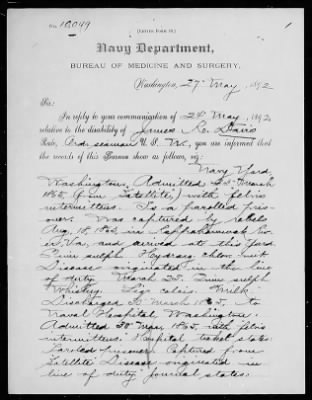 No. 16,049
1
Navy Department,
BUREAU OF MEDICINE AND SURGERY,
Washington, 27" May, 1892
Sir:
In reply to your communication of 24" May, 1892
relative to the disability of James R.
Rate, Ord seaman U.S.N., you are informed that
the records of this Bureau show as follows, viz:
Navy Yard,
Washington, Admitted March
1865, from Satellite, with febris
intermittens. Is a parolled pris-
oner. Was captured by rebels
Aug. 18, 1863, in Rappahannock Riv-
er, Va., and arrived at this Yard
sulph Hydrarg chlor mit
Disease originated in the line
of duty. March 25. Quin sulph
Whiskey. Liq. Milk.
Discharged 30" March 1865, to
Naval Hospital, Washington.
Admitted 30" Mar, 1865, with febris
intermittens. Hospital ticket states:
Paroled prisoner. Captured from
Satellite Disease originated in
line of duty journal states: